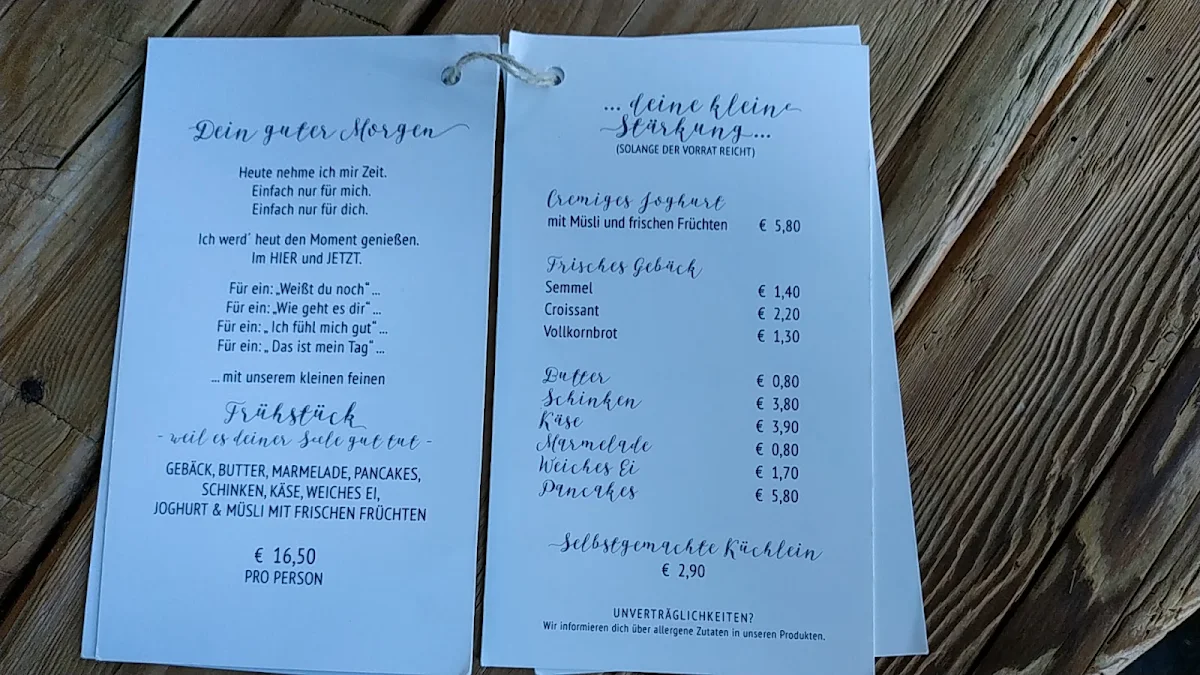 Dein guter Morgen
Heute nehme ich mir Zeit.
Einfach nur für mich.
Einfach nur für dich.
Ich werd´ heut den Moment genießen.
Im HIER und JETZT.
Für ein: „Weißt du noch“ ...
Für ein: „Wie geht es dir“ ...
Für ein: „ Ich fühl mich gut“ ...
Für ein: „ Das ist mein Tag“ ...
... mit unserem kleinen feinen
Frühstück
- weil es deiner Seele gut tut -
GEBÄCK, BUTTER, MARMELADE, PANCAKES,
SCHINKEN, KÄSE, WEICHES EI,
JOGHURT & MÜSLI MIT FRISCHEN FRÜCHTEN
€ 16,50
PRO PERSON
... deine kleine
Stärkung ...
(SOLANGE DER VORRAT REICHT)
Cremiges Joghurt
mit Müsli und frischen Früchten € 5,80
Frisches Gebäck
Semmel € 1,40
Croissant € 2,20
Vollkornbrot € 1,30
Butter € 0,80
Schinken € 3,80
Käse € 3,90
Marmelade € 0,80
Weiches Ei € 1,70
Pancakes € 5,80
Selbstgemachte Küchlein
€ 2,90
UNVERTRÄGLICHKEITEN?
Wir informieren dich über allergene Zutaten in unseren Produkten.